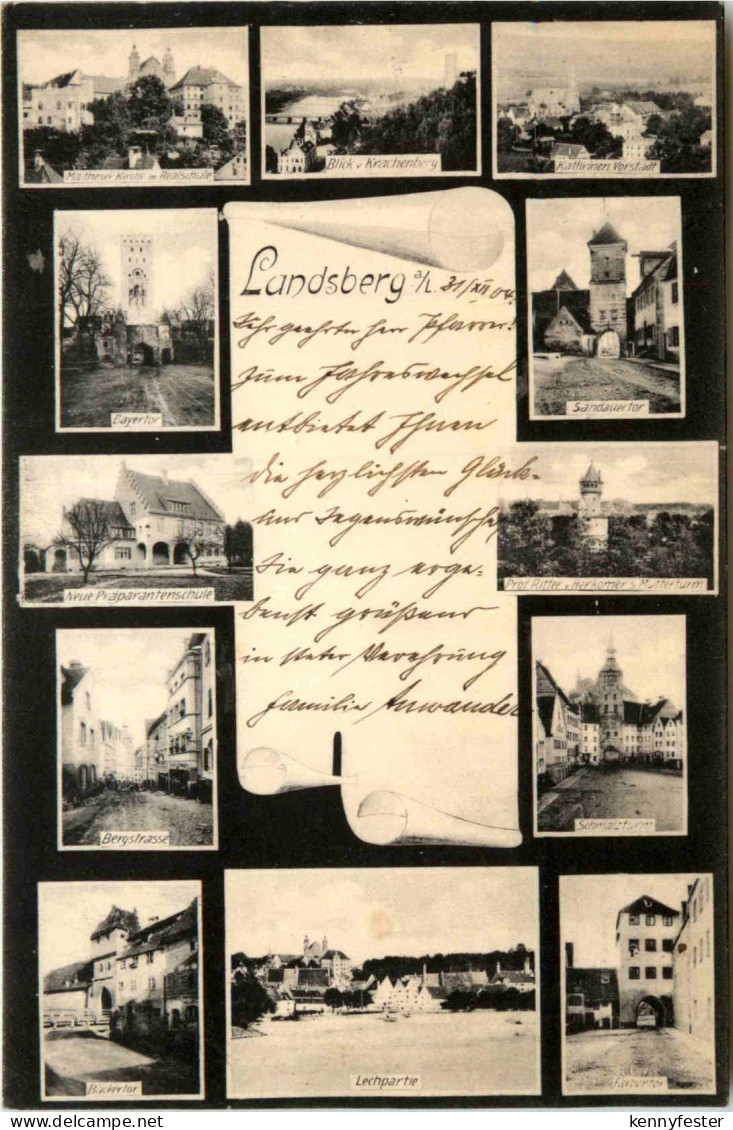 Malteser Kirche m Realschule
Blick v Krachenberg
Kathrinen Vorstadt
Landsberg a/L. 31/XII 04.
Bayertor
Sandauertor
Sehr geehrter Herr Pfarrer!
Zum Jahreswechsel
entbietet Ihnen
die herzlichsten Glück-
und Segenswünsche
Sie ganz erge-
benst grüßend
in steter Verehrung
Familie Anwander
Neue Präparantenschule
Prof. Ritter v Herkomer's Mutterturm
Bergstrasse
Schmalzturm
Bäckertor
Lechpartie
Färbertor
kennyfester
www.delcampe.net